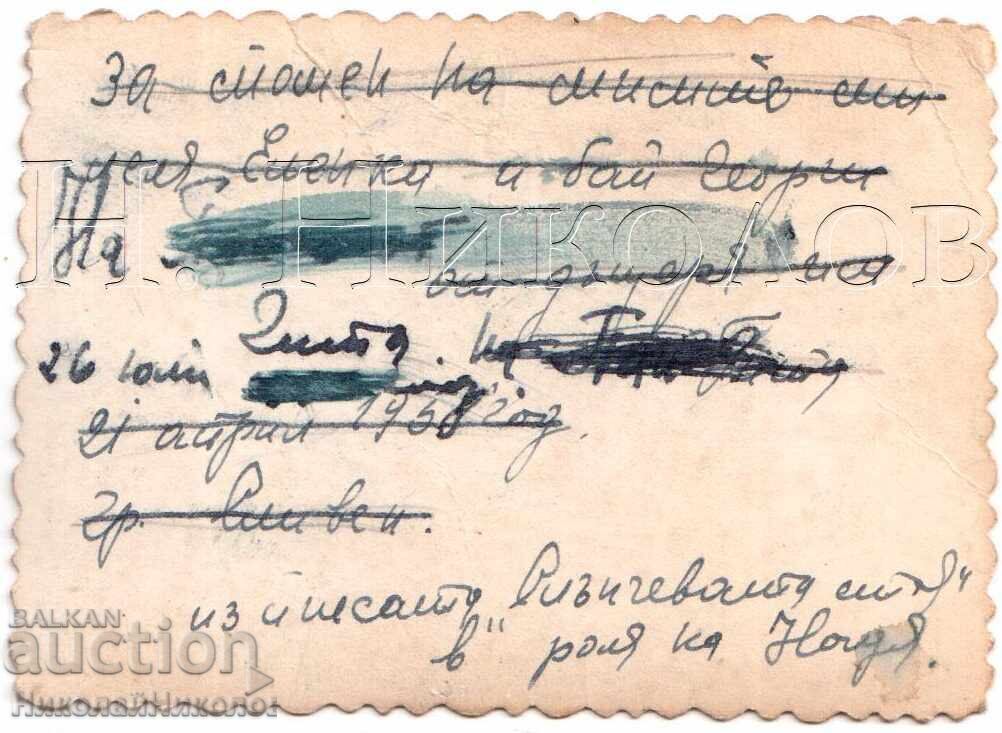 За спомен на милите ми
леля Еленка и бай Георги
На
от дъщеря им
26 юли
21 април 1958 год.
гр. Сливен.
из пиесата "Слънчевата стая"
в роля на Надя.
Н. НИКОЛОВ
BALKAN
auction
НиколайНиколов